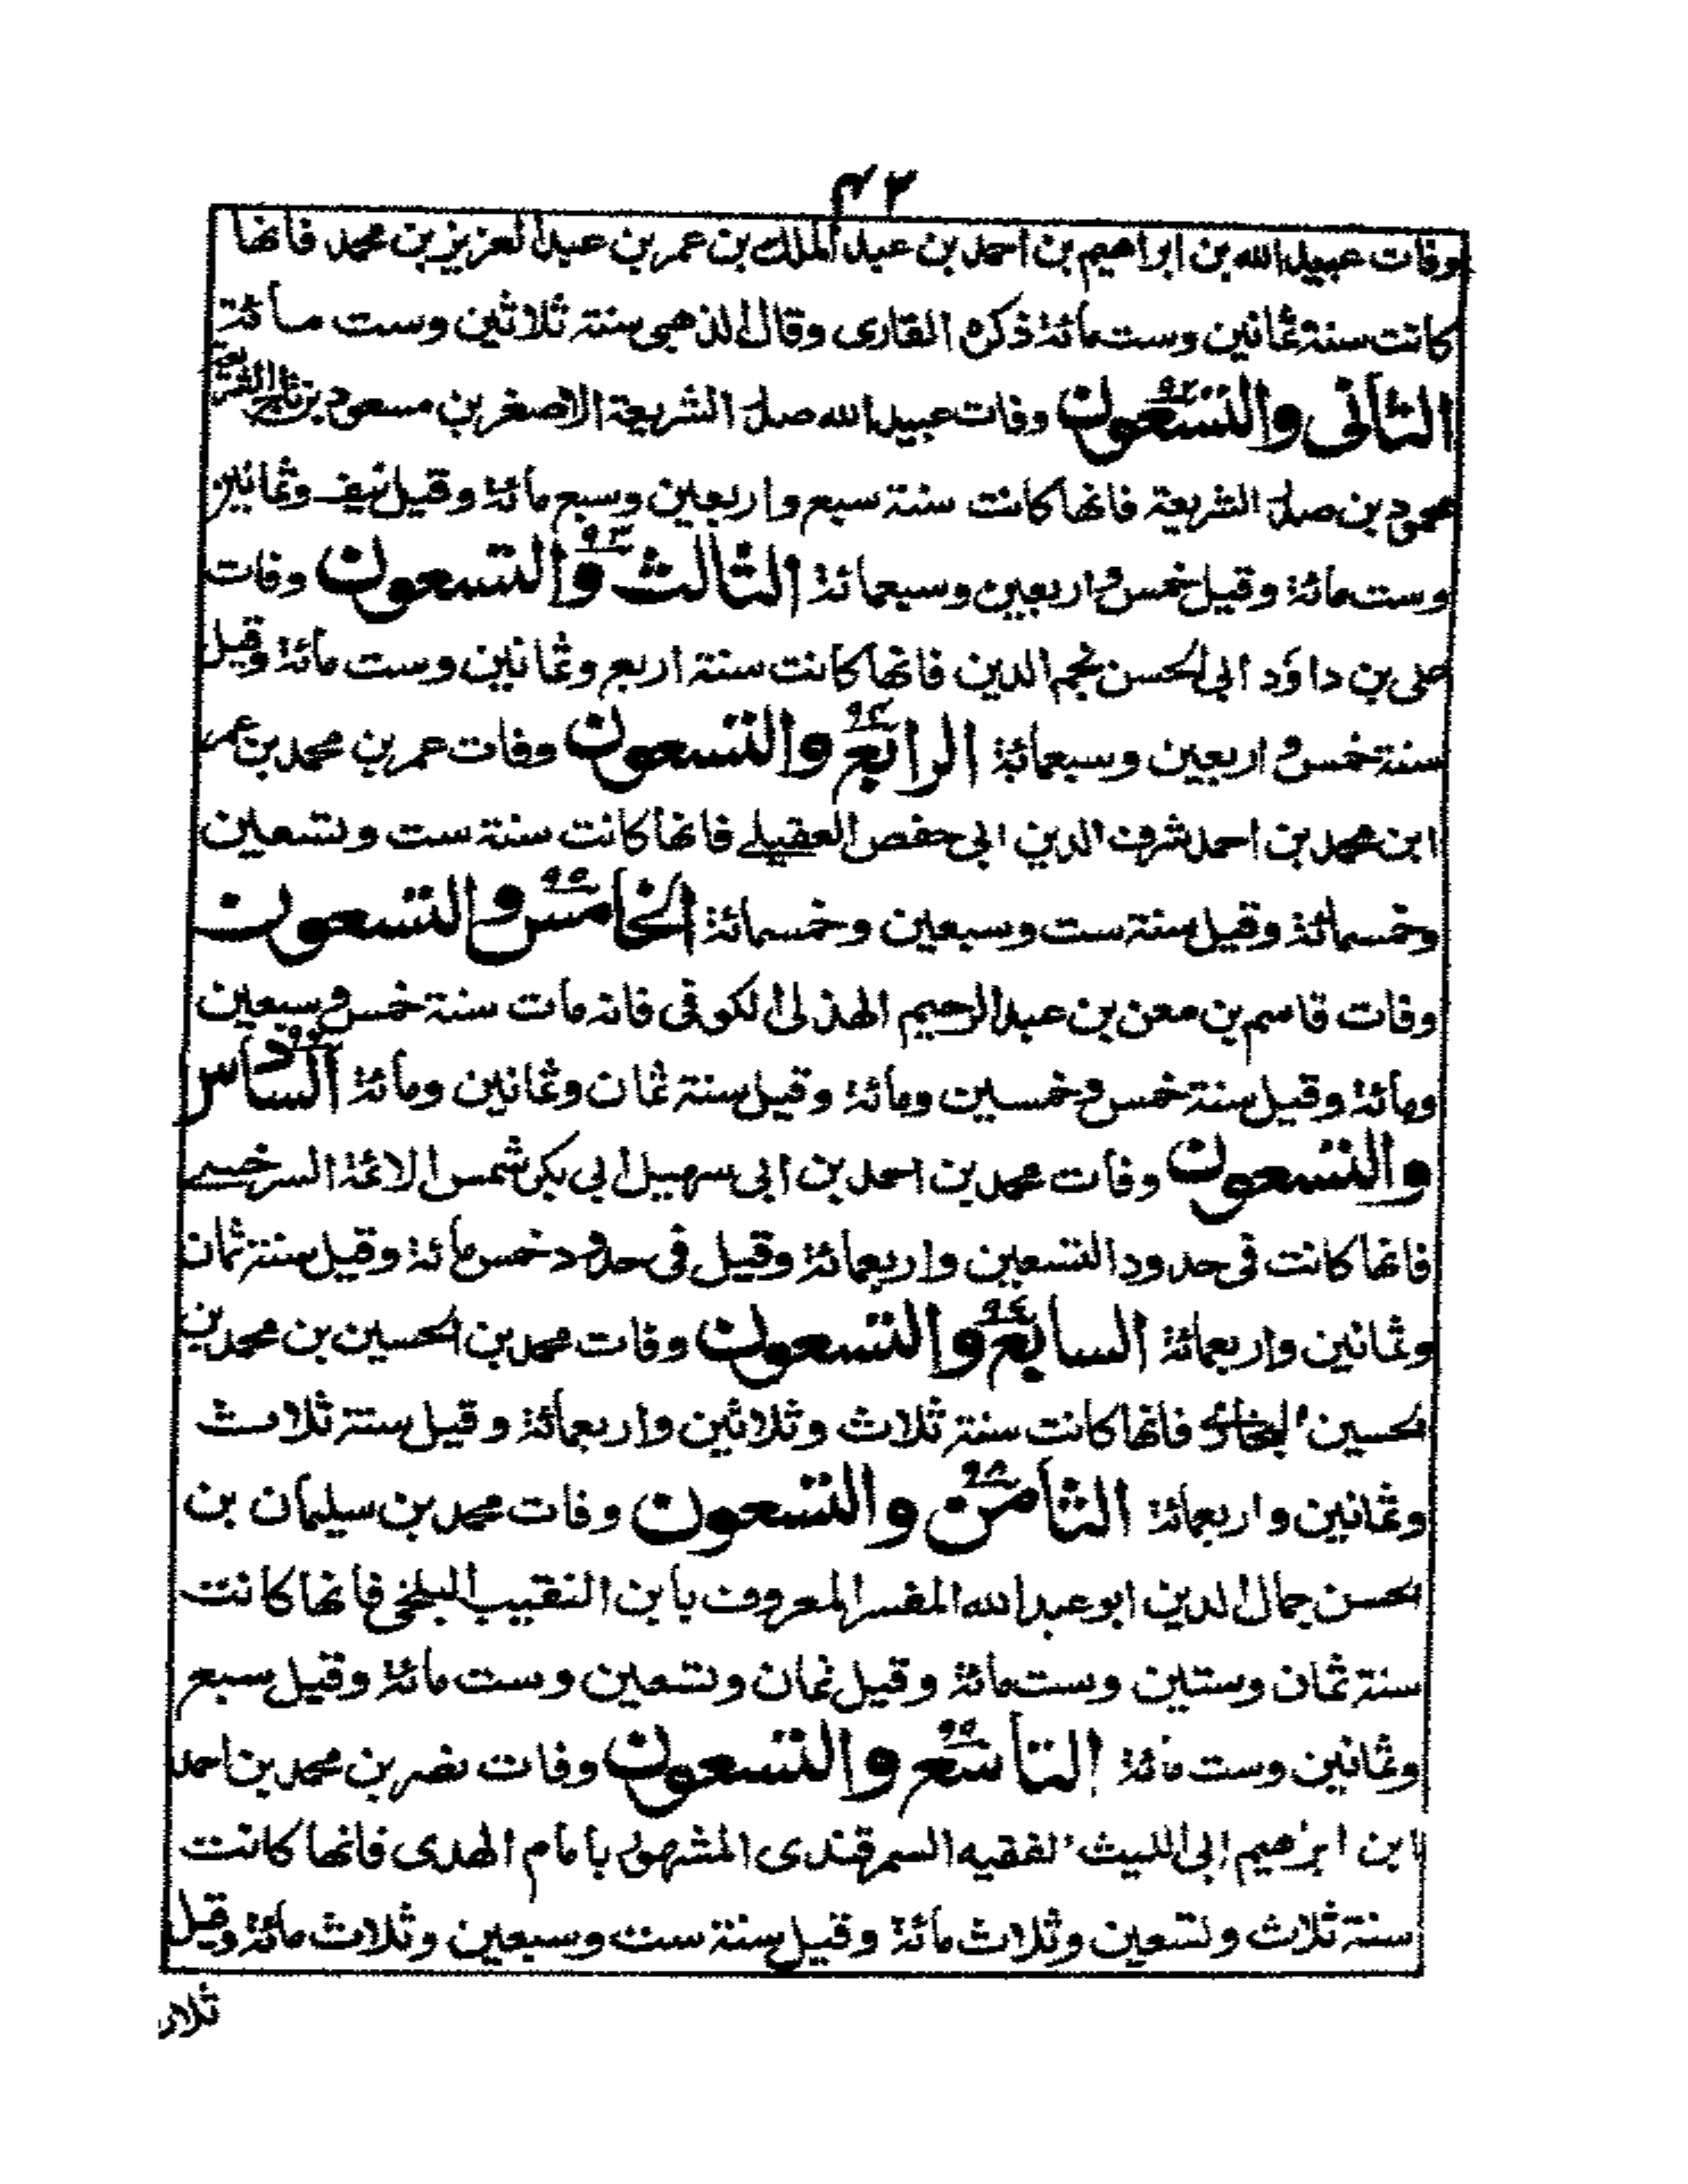 ٤٢
وفات عبيد الله بن ابراهيم بن احمد بن عبد الملك بن عمر بن عبد العزيز بن محمد فانها
كانت سنة ثمانين وست مائة ذكره القارى وقال الذهبى سنة ثلاثين وست مائة
الثانى والتسعون ٩٢ وفات عبيد الله صدر الشريعة الاصغر بن مسعود بن تاج الشريعة
محمود بن صدر الشريعة فانها كانت سنة سبع واربعين وسبع مائة وقيل نيف وثمانين
وست مائة وقيل خمس واربعين وسبعمائة الثالث والتسعون ٩٣ وفات
على بن داؤد ابى الحسن نجم الدين فانها كانت سنة اربع وثمانين وست مائة وقيل
سنة خمس واربعين وسبعمائة الرابع والتسعون ٩٤ وفات عمر بن محمد بن عمر
ابن محمد بن احمد شرف الدين ابى حفص العقيلے فانها كانت سنة ست وتسعين
وخمسمائة وقيل سنة ست وسبعين وخمسمائة الخامس والتسعون ٩٥
وفات قاسم بن معن بن عبد الرحيم الهذلى الكوفى فانه مات سنة خمس وسبعين
ومائة وقيل سنة خمس وخمسين ومائة وقيل سنة ثمان وثمانين ومائة السادس
والتسعون وفات محمد بن احمد بن ابى سهيل ابى بكر شمس الائمة السرخسے
فانها كانت فى حدود التسعين واربعمائة وقيل فى حدود خمس مائة وقيل سنة ثمان
وثمانين واربعمائة السابع والتسعون ٩٧ وفات محمد بن الحسين بن محمد بن
الحسين البخارى فانها كانت سنة ثلاث وثلاثين واربعمائة وقيل سنة ثلاث
وثمانين واربعمائة الثامن والتسعون ٩٨ وفات محمد بن سليمان بن
الحسن جمال الدين ابو عبد الله المفسر المعروف بابن النقيب البلخى فانها كانت
سنة ثمان وستين وست مائة وقيل ثمان وتسعين وست مائة وقيل سبع
وثمانين وست مائة التاسع والتسعون ٩٩ وفات نصر بن محمد بن احمد
ابن ابرهيم ابى الليث الفقيه السمرقندى المشهور بامام الهدى فانها كانت
سنة ثلاث وتسعين وثلاث مائة وقيل سنة ست وسبعين وثلاث مائة وقيل
ثلاث